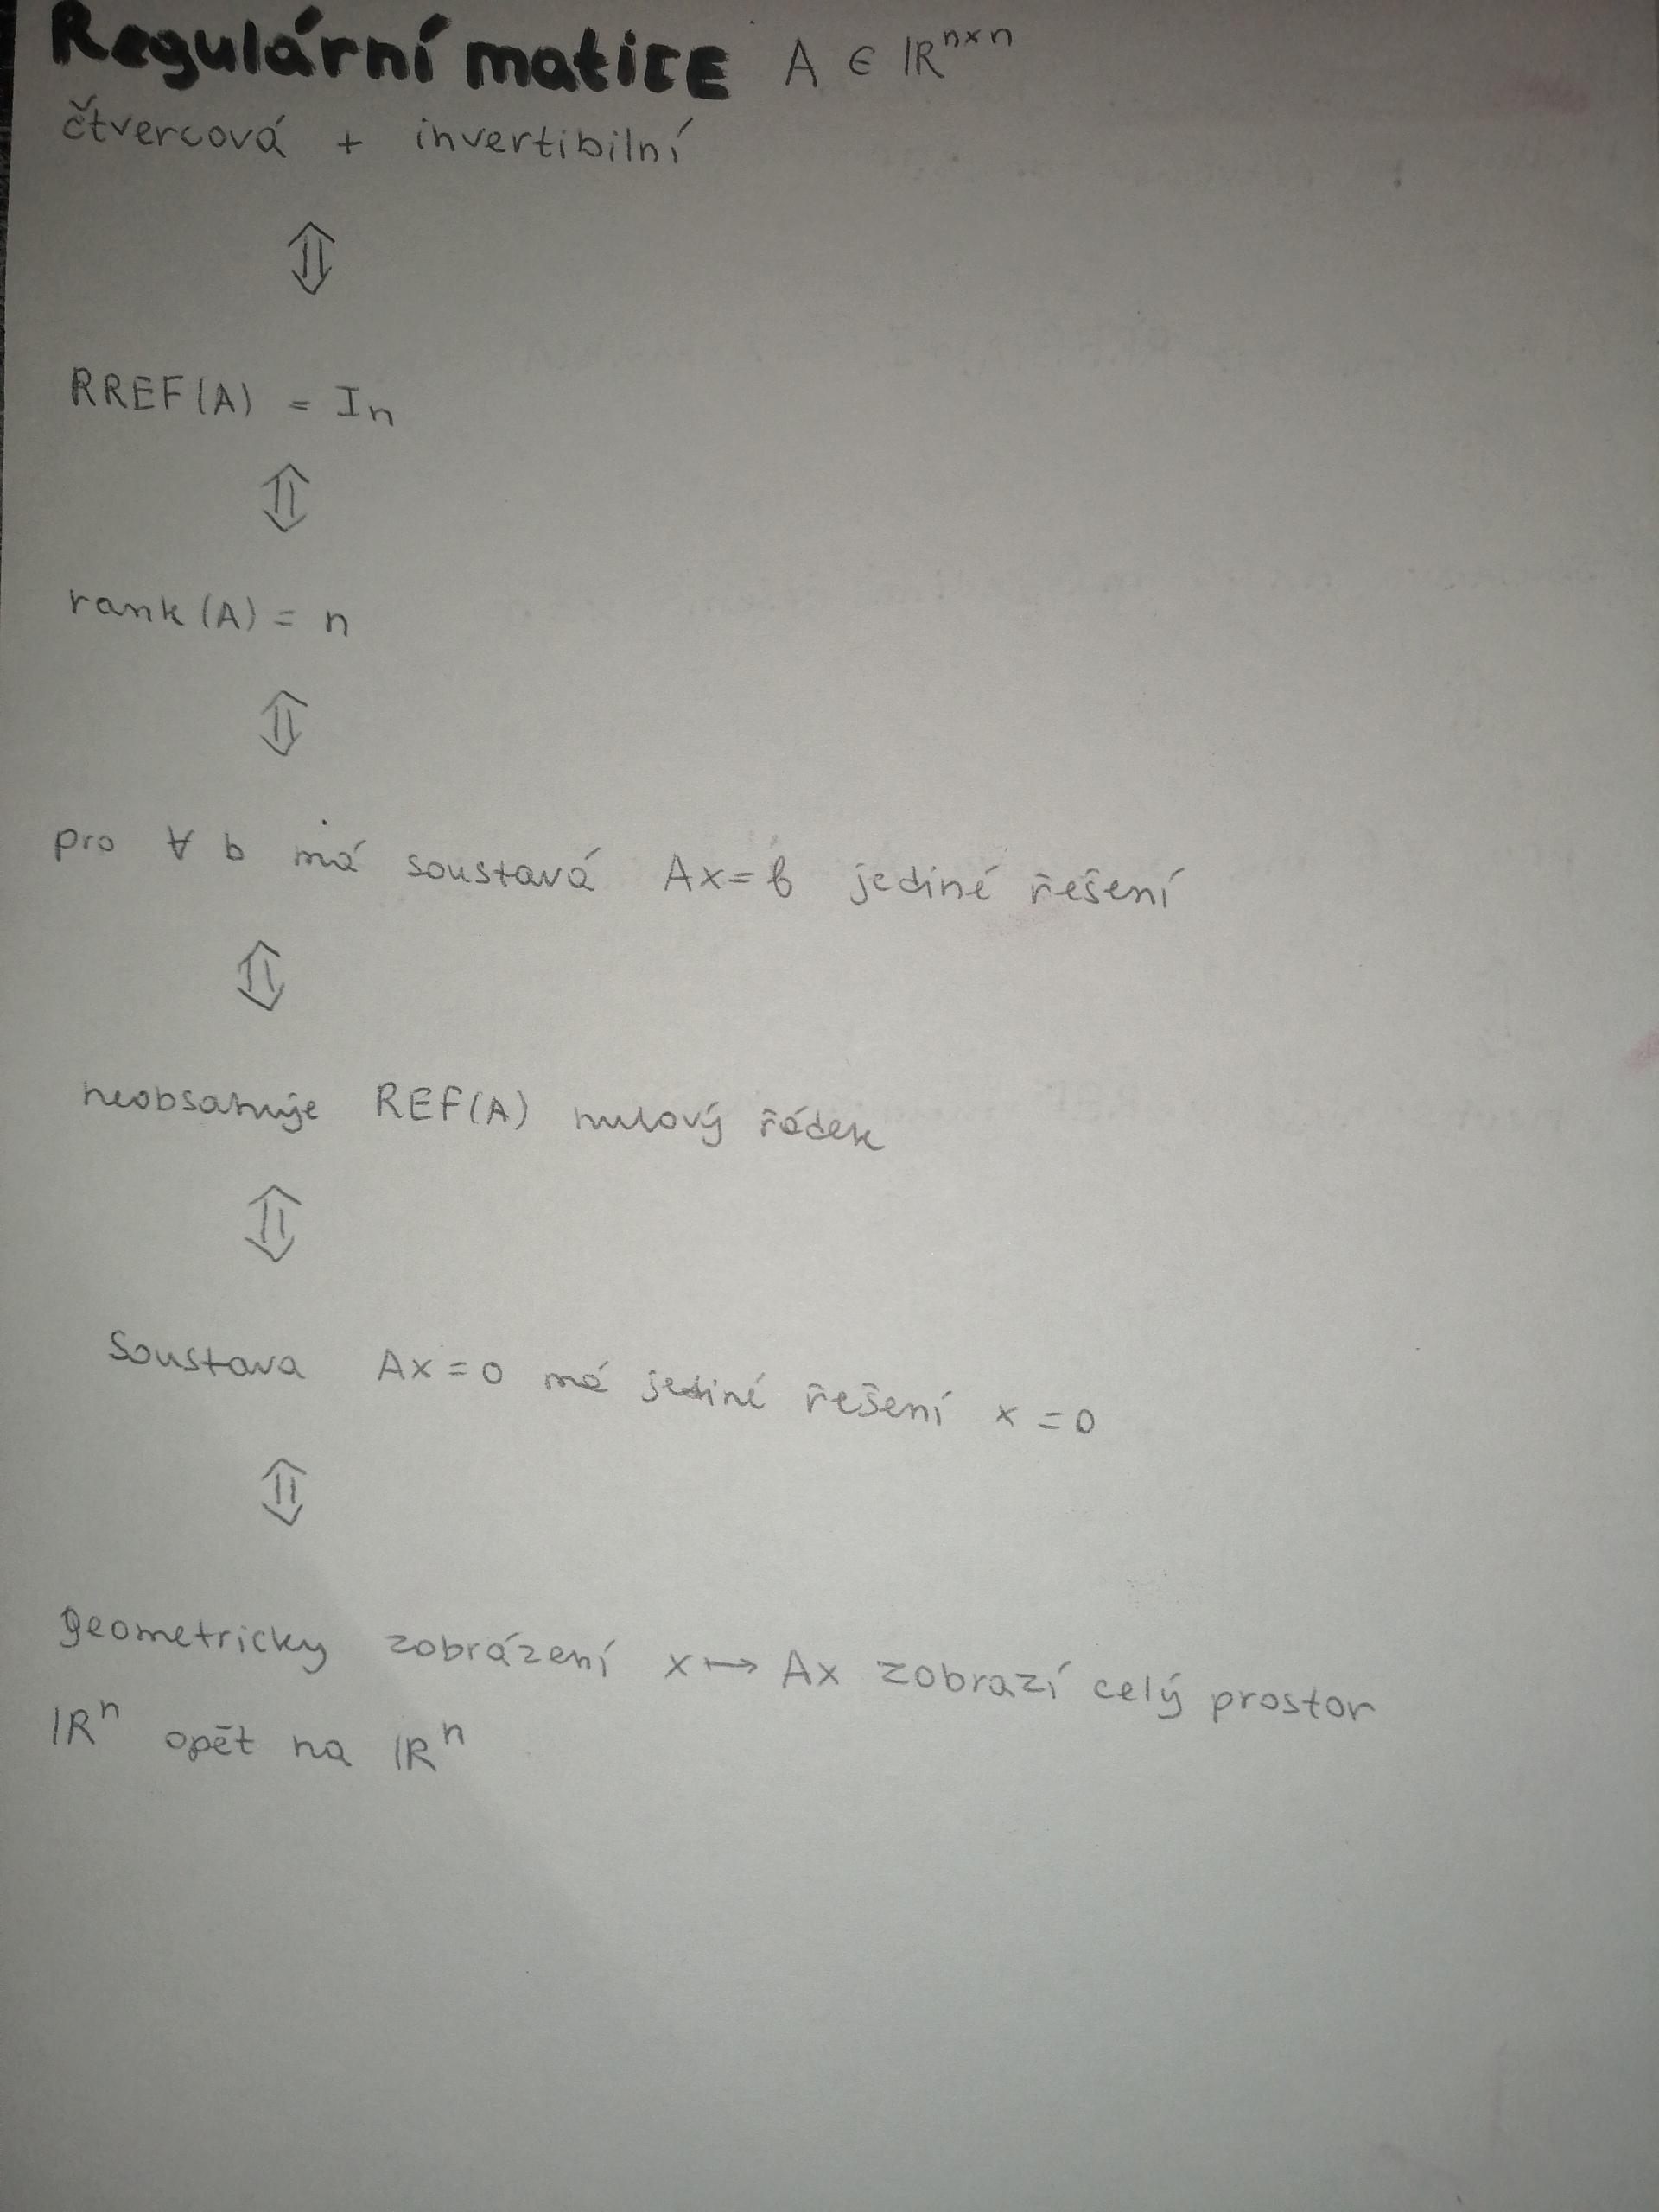 Regulární maticE A ∈ ℝⁿˣⁿ
čtvercová + invertibilní
⇕
RREF(A) = In
⇕
rank(A) = n
⇕
pro ∀ b má soustavá Ax=b jediné řešení
⇕
neobsahuje REF(A) nulový řádek
⇕
Soustava Ax=0 má jediné řešení x=0
⇕
geometricky zobrázení x↦Ax zobrazí celý prostor
ℝⁿ opět na ℝⁿ